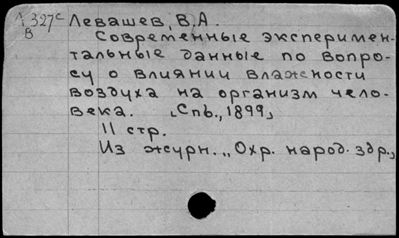 А 327с Левашев, В.А.
В Современные эксперимен-
тальные данные по вопро-
су о влиянии влажности
воздуха на организм чело-
века. „Спб., 1899„
11 стр.
Из журн. „Охр. народ. здр.„